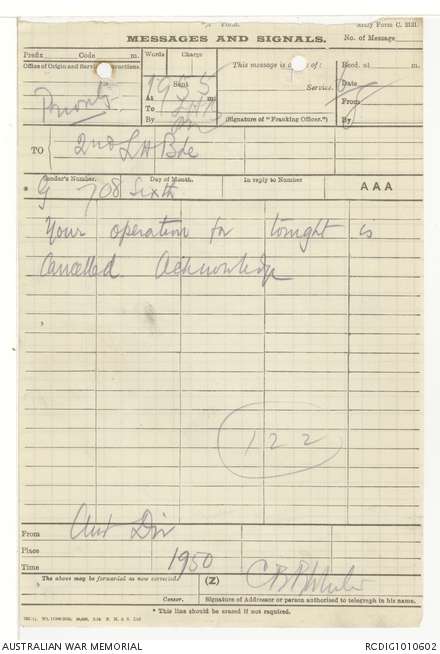 Army Form C. 2121.
MESSAGES AND SIGNALS.
No. of Message
Prefix Code m.
Words
Charge
This message is on a/c of:
Recd. at m.
Office of Origin and Service Instructions.
Priority
Sent
1955
Service.
Date
At m.
From
To
By
(Signature of "Franking Officer.")
By
TO
2nd LH Bde
Sender's Number.
Day of Month.
In reply to Number
AAA
* G 708
Sixth
Your operation for tonight is
Cancelled. Acknowledge
122
From
Aust Div
Place
Time
1950
The above may be forwarded as now corrected.
(Z)
Censor.
Signature of Addressor or person authorised to telegraph in his name.
* This line should be erased if not required.
AUSTRALIAN WAR MEMORIAL
RCDIG1010602